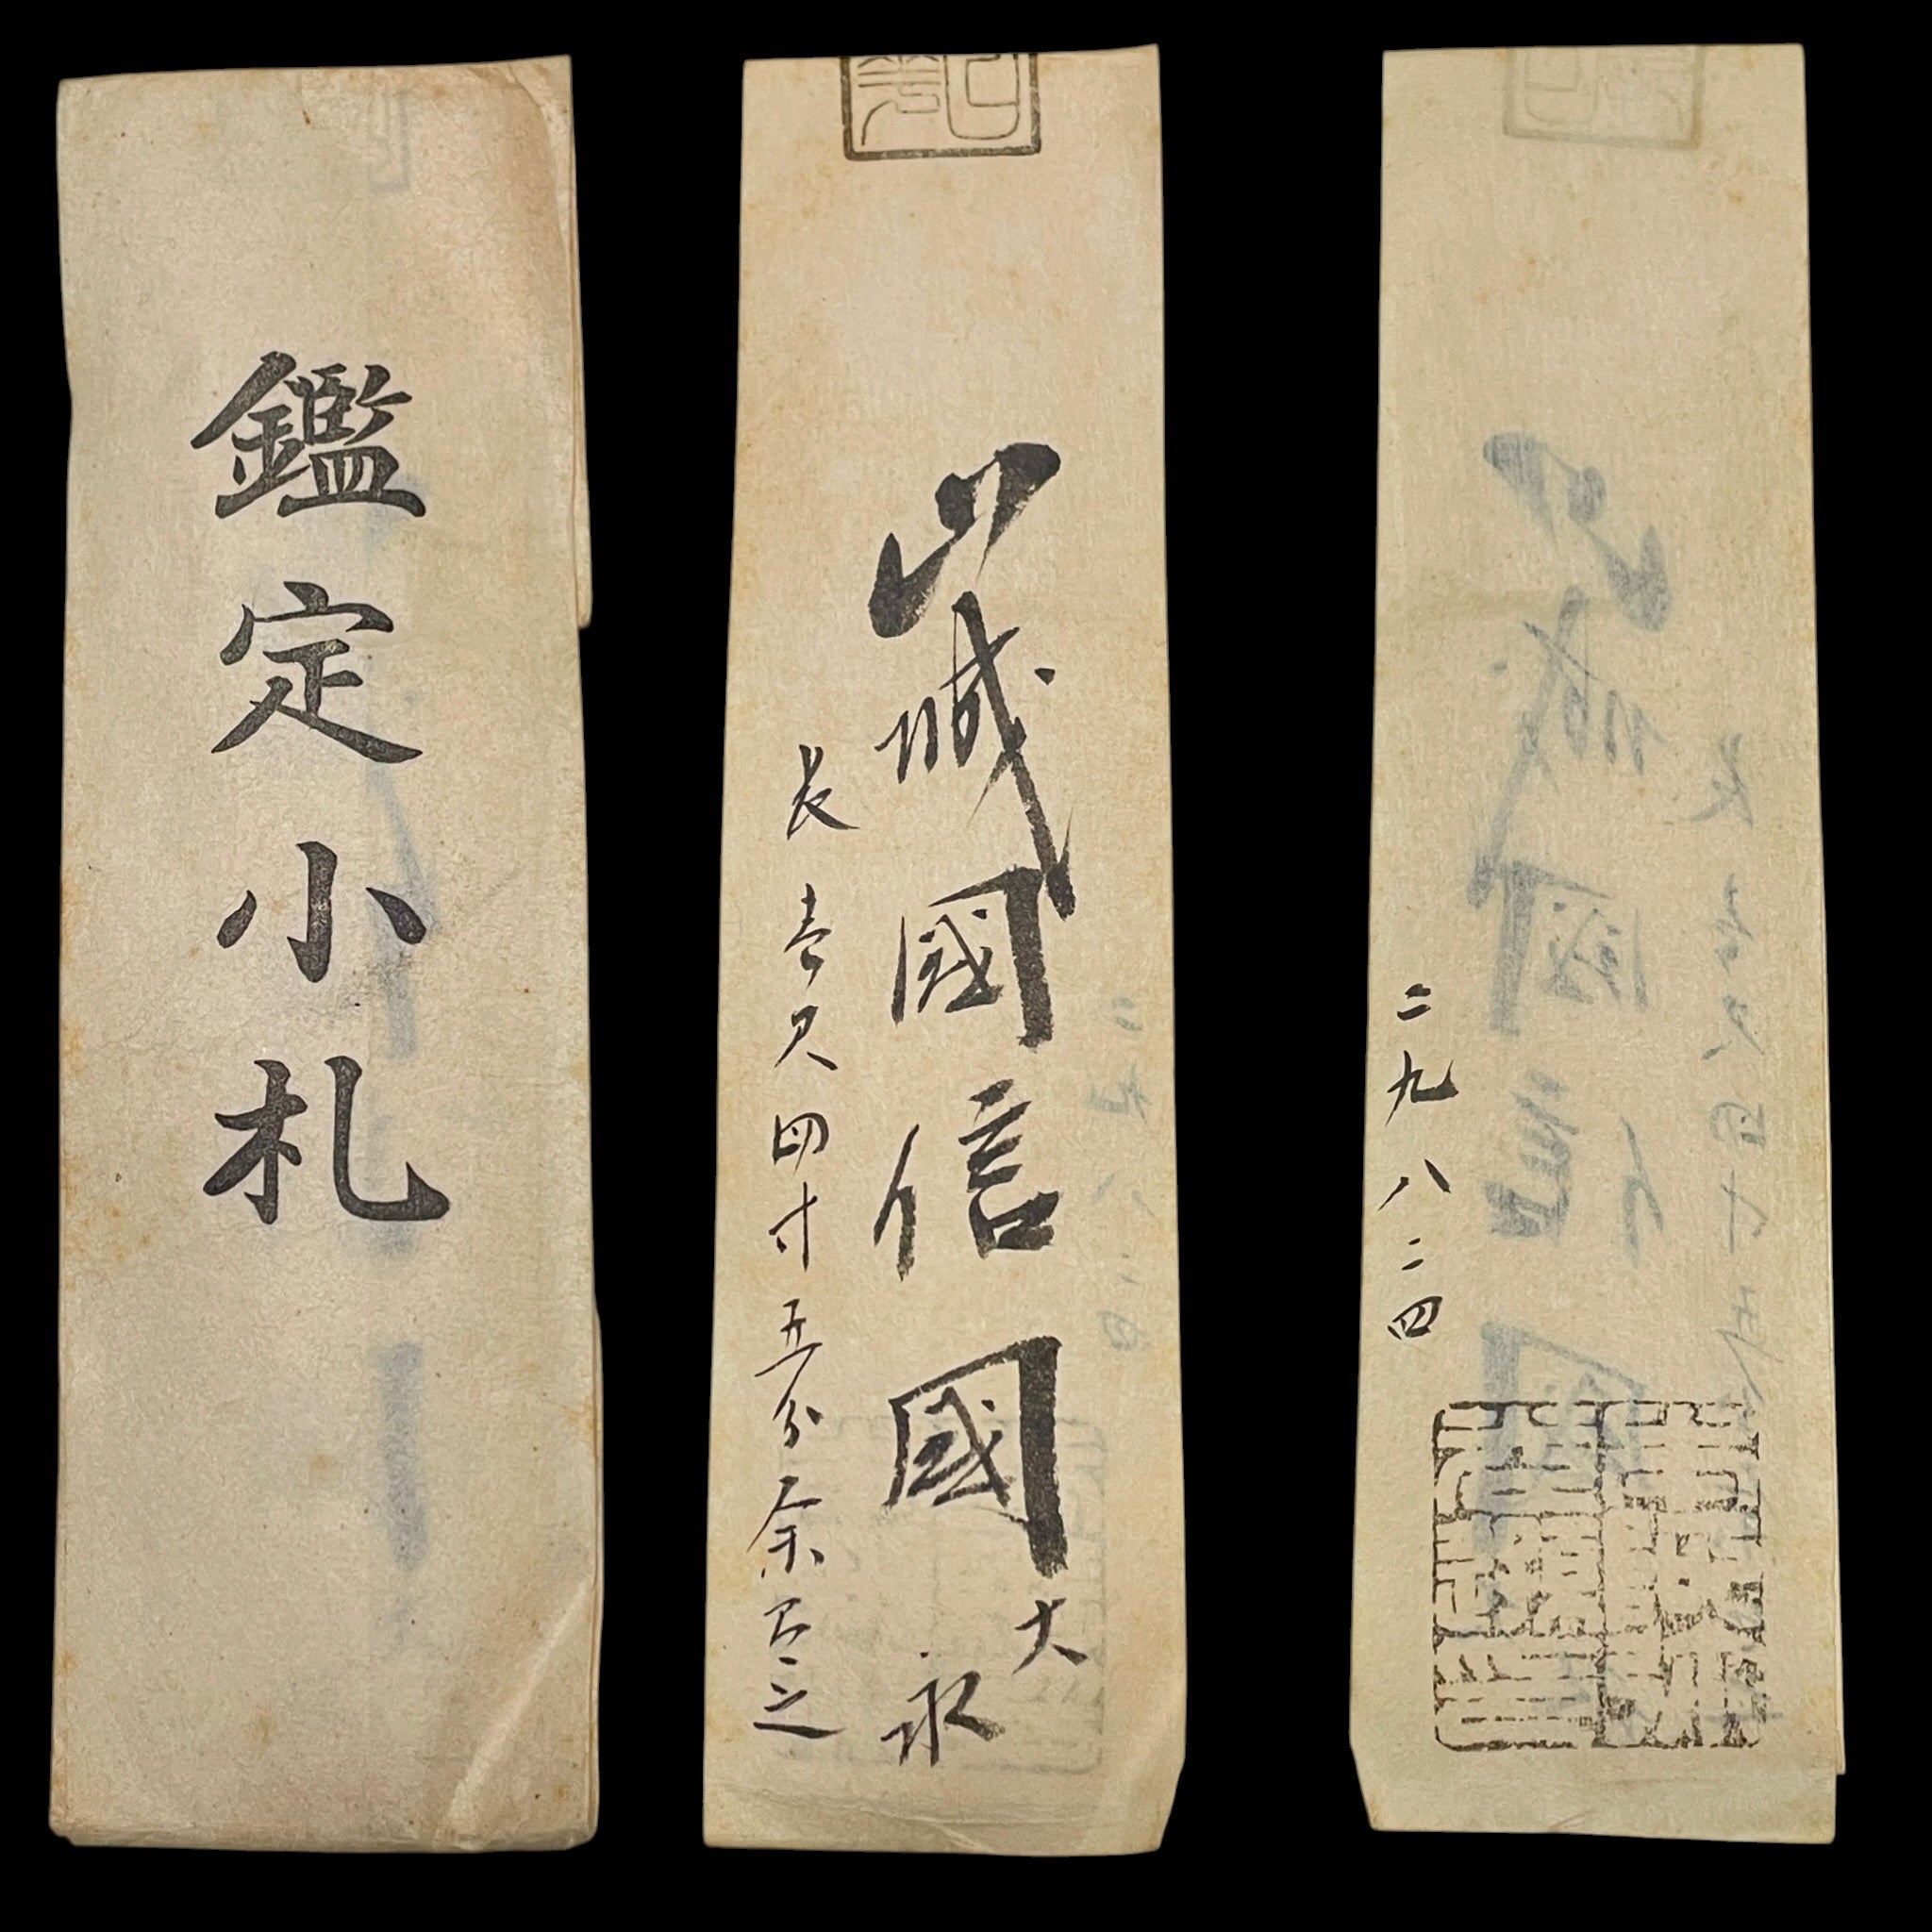 鑑定小札
山城國信國
大永
長壱尺四寸五分余有之
二九八二四